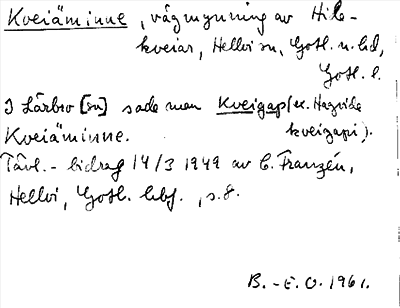 Kveiäminne, vägmynning av Hile-
kveiar, Hellvi sn, Gotl. n. hd,
Gotl. l.
I Lärbro [sn] sade man Kveigap (ex. Hagvide
Kveiäminne. kveigapi).
Tävl.-bidrag 14/3 1949 av C. Franzén,
Hellvi, Gotl. hbf., s. 8.
B.-E. O. 1961.